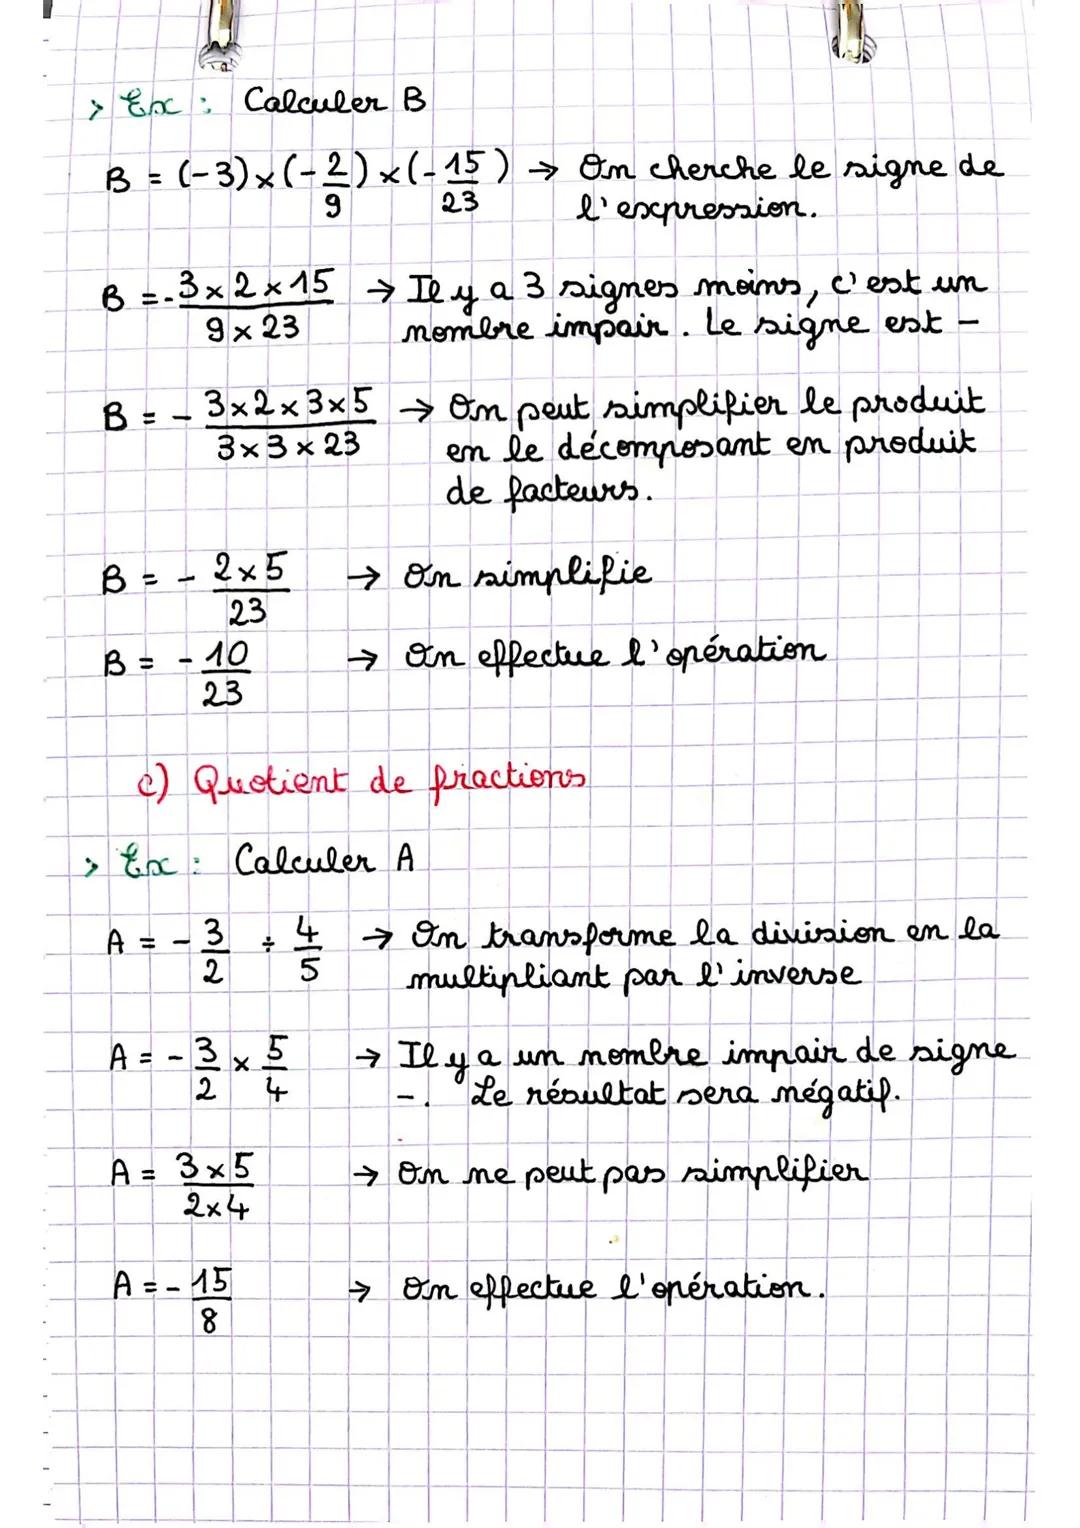 > Ex : Calculer B
B = (-3)×(-2/9)×(-15/23) → On cherche le signe de
l'expression.
B = - 3×2×15 / 9×23 → Il y a 3 signes moins, c'est un
nombre impair. Le signe est -
B = - 3×2×3×5 / 3×3×23 → On peut simplifier le produit
en le décomposant en produit
de facteurs.
B = - 2×5 / 23 → On simplifie
B = - 10/23 → On effectue l'opération
c) Quotient de fractions
> Ex : Calculer A
A = - 3/2 ÷ 4/5 → On transforme la division en la
multipliant par l'inverse
A = - 3/2 × 5/4 → Il y a un nombre impair de signe
-. Le résultat sera négatif.
A = 3×5 / 2×4 → On ne peut pas simplifier
A = - 15/8 → On effectue l'opération.